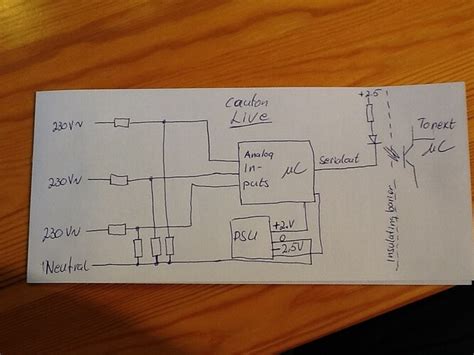 Cauton
Live
230V~
230V~
230V~
Neutral
Analog
In-
puts
µC
PSU
+2.V
0
-2.5V
Serial out
+2.5
Insulating barrier
To next
µC